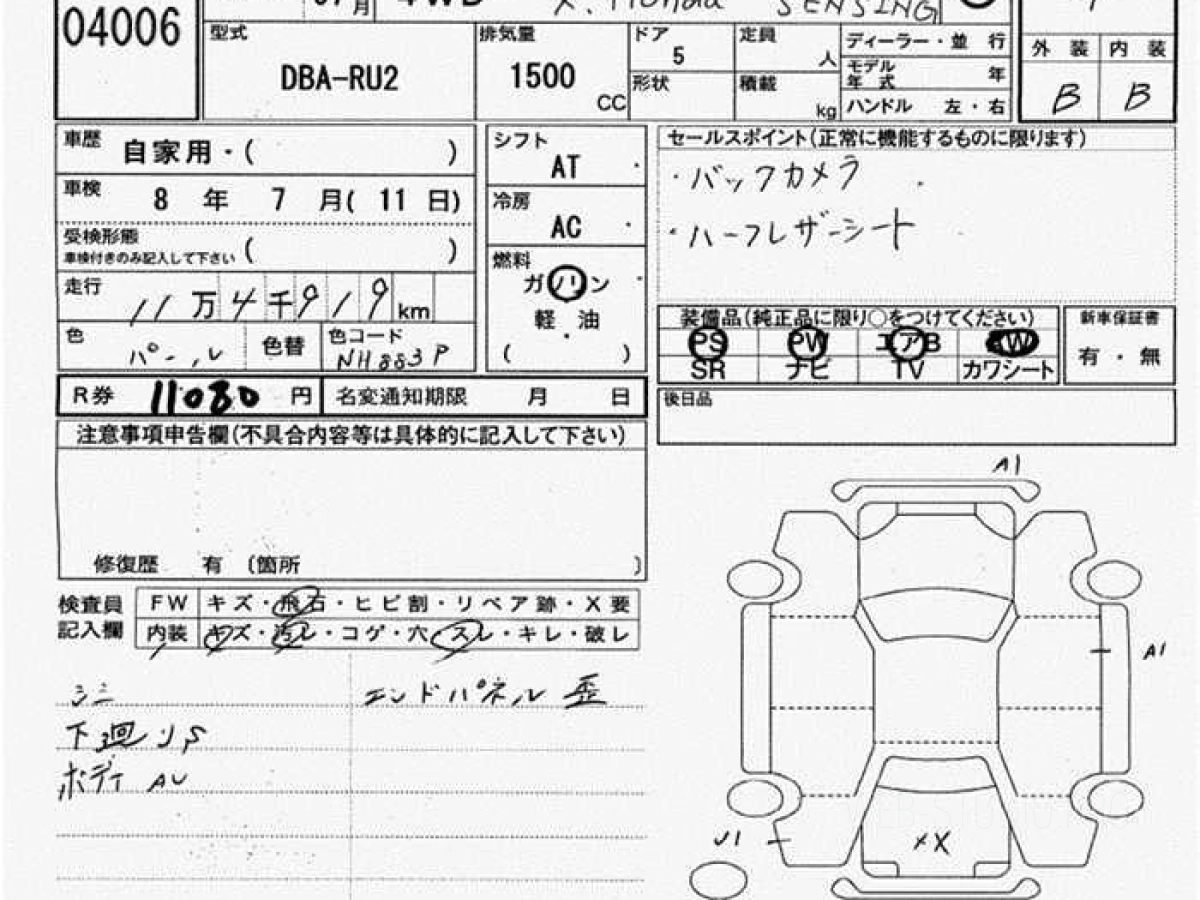 04006
月 4WD X. Honda SENSING
型式 DBA-RU2
排気量 1500 CC
ドア 5
形状
定員 人
積載 kg
ディーラー・並 行
モデル年式 年
ハンドル 左・右
外装 内装
B B
車歴 自家用・( )
車検 8 年 7 月( 11 日)
受検形態 ( )
車検付きのみ記入して下さい
走行 11 万 4 千 919 km
色 パール 色替 色コード NH883P
R券 11080 円 名変通知期限 月 日
シフト AT
冷房 AC
燃料
ガソリン
軽・油
( )
セールスポイント(正常に機能するものに限ります)
・バックカメラ
・ハーフレザーシート
装備品(純正品に限り○をつけてください)
PS PW エアB AW
SR ナビ TV カワシート
新車保証書
有・無
後日品
注意事項申告欄(不具合内容等は具体的に記入して下さい)
修復歴 有 〔箇所 〕
検査員記入欄
FW キズ・飛石・ヒビ割・リペア跡・X要
内装 キズ・汚レ・コゲ・穴・スレ・キレ・破レ
シミ エンドパネル 歪
下廻 リS
ボディ AU
A1
A1
U1
XX